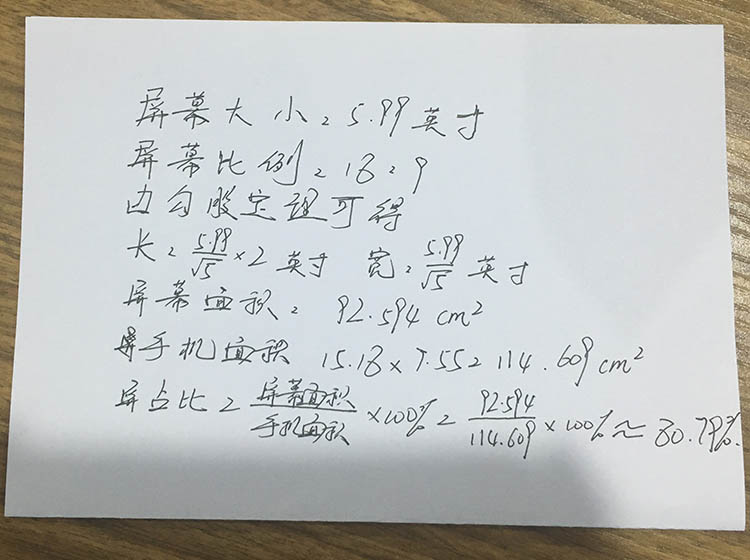 屏幕大小：5.99英寸
屏幕比例：18：9
由勾股定理可得
长：5.99/√5×2 英寸 宽：5.99/√5 英寸
屏幕面积：92.594 cm²
手机面积 15.18×7.55=114.609cm²
屏占比=屏幕面积/手机面积×100%=92.594/114.609×100%≈80.79%.